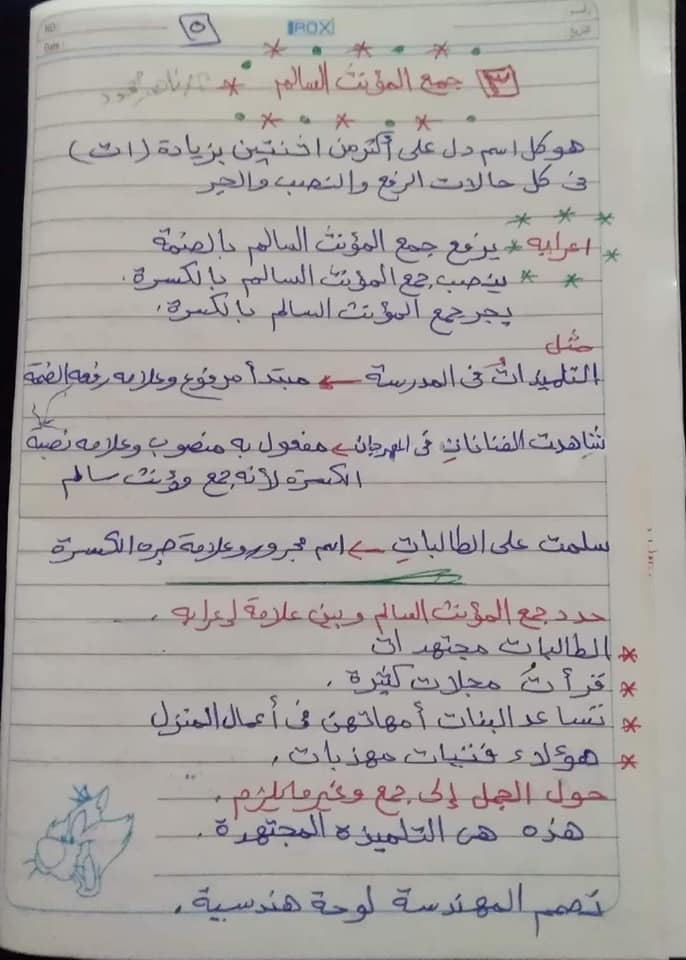 ٥
ROXI
٣ جمع المؤنث السالم
هو كل اسم دل على أكثر من اثنتين بزيادة (ات)
فى كل حالات الرفع والنصب والجر
اعرابه * يرفع جمع المؤنث السالم بالضمة
ينصب جمع المؤنث السالم بالكسرة.
يجر جمع المؤنث السالم بالكسرة.
مثل
التلميذاتُ فى المدرسة ← مبتدأ مرفوع وعلامه رفعه الضمة
شاهدت الفناناتِ فى المهرجان ← مفعول به منصوب وعلامه نصبة
الكسرة لأنه جمع مؤنث سالم
سلمت على الطالباتِ ← اسم مجرور وعلامة جره الكسرة
حدد جمع المؤنث السالم وبين علامة إعرابه.
* الطالبات مجتهدات
* قرأتُ مجلات كثيرة.
* تساعد البنات أمهاتهن فى أعمال المنزل
* هؤلاء فتيات مهذبات.
حول الجمل إلى جمع وغير ما يلزم.
هذه هى التلميذة المجتهدة.
تصمم المهندسة لوحة هندسية.